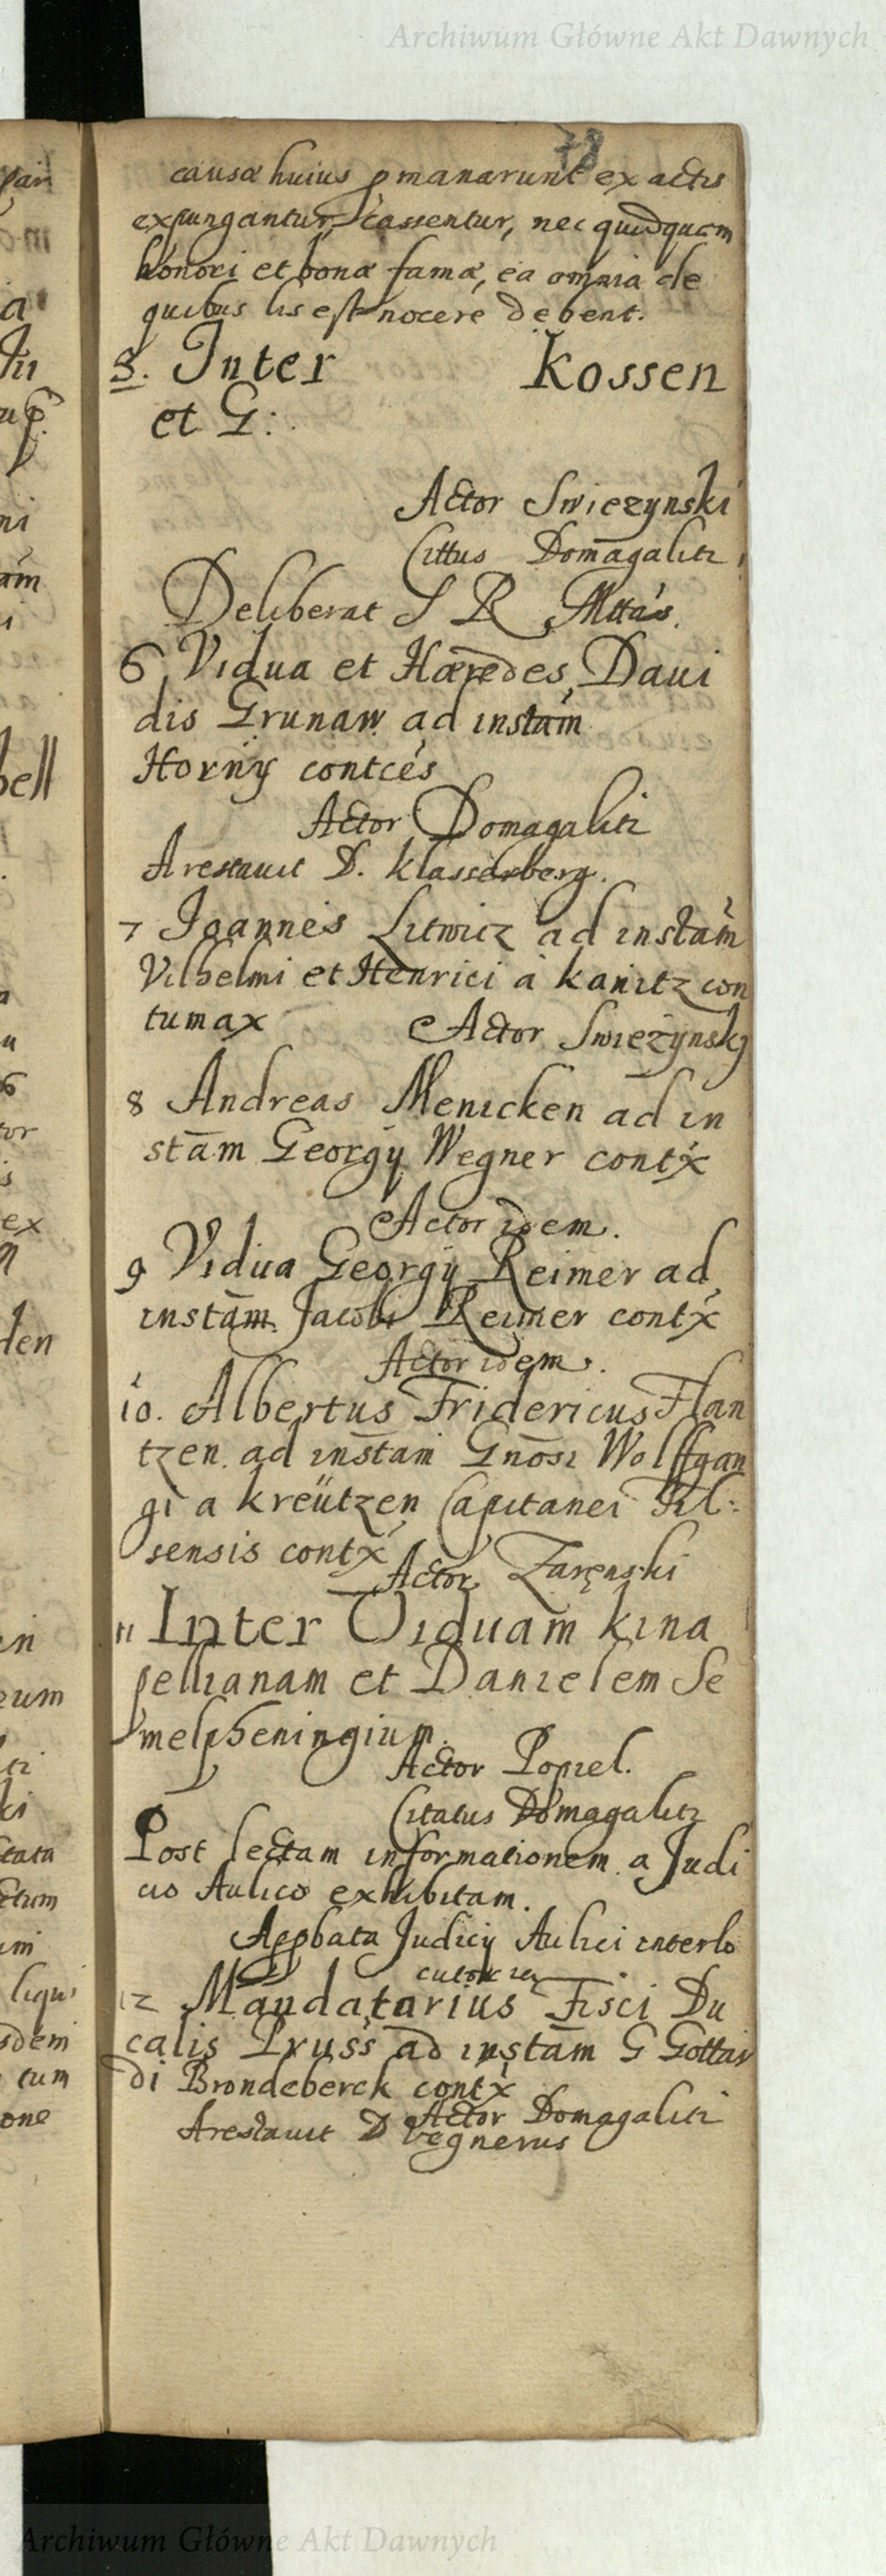 Archiwum Główne Akt Dawnych
78
causæ huius pmanarunt ex actis
expungantur, cassentur, nec quidquam
honori et bonæ famæ, ea omnia de
quibus lis est nocere debent.
5. Inter Kossen
et G:
Actor Swiezynski
Cittus Domagalitz
Deliberat S R Mttas.
6. Vidua et Hæredes Daui
dis Grunaw ad instam
Horny contces
Actor Domagalitz
Arestauit D. Klasserberg.
7 Joannes Litwicz ad instam
Vilhelmi et Henrici à Kanitz con
tumax Actor Swiezynskj
8 Andreas Menicken ad in
stam Georgij Wegner contx
Actor idem.
9 Vidua Georgij Reimer ad
instam Jacobi Reimer contx
Actor idem.
10. Albertus Fridericus Flan
tzen ad instam Gnosi Wolffgan
gi a Kreützen Capitanei Til:
sensis contx
Actor Zarenski
11 Inter Viduam Kina
pellianam et Danielem Se
melpheningium.
Actor Popiel.
Citatus Domagalitz
Post lectam informationem a Judi
cio Aulico exhibitam.
Appbata Judicij Aulici interlo
cutoria
12 Mandatarius Fisci Du
calis Pruss ad instam G Gottar
di Brondeberck contx
Actor Domagalitz
Arestauit D Vegnerus
Archiwum Główne Akt Dawnych